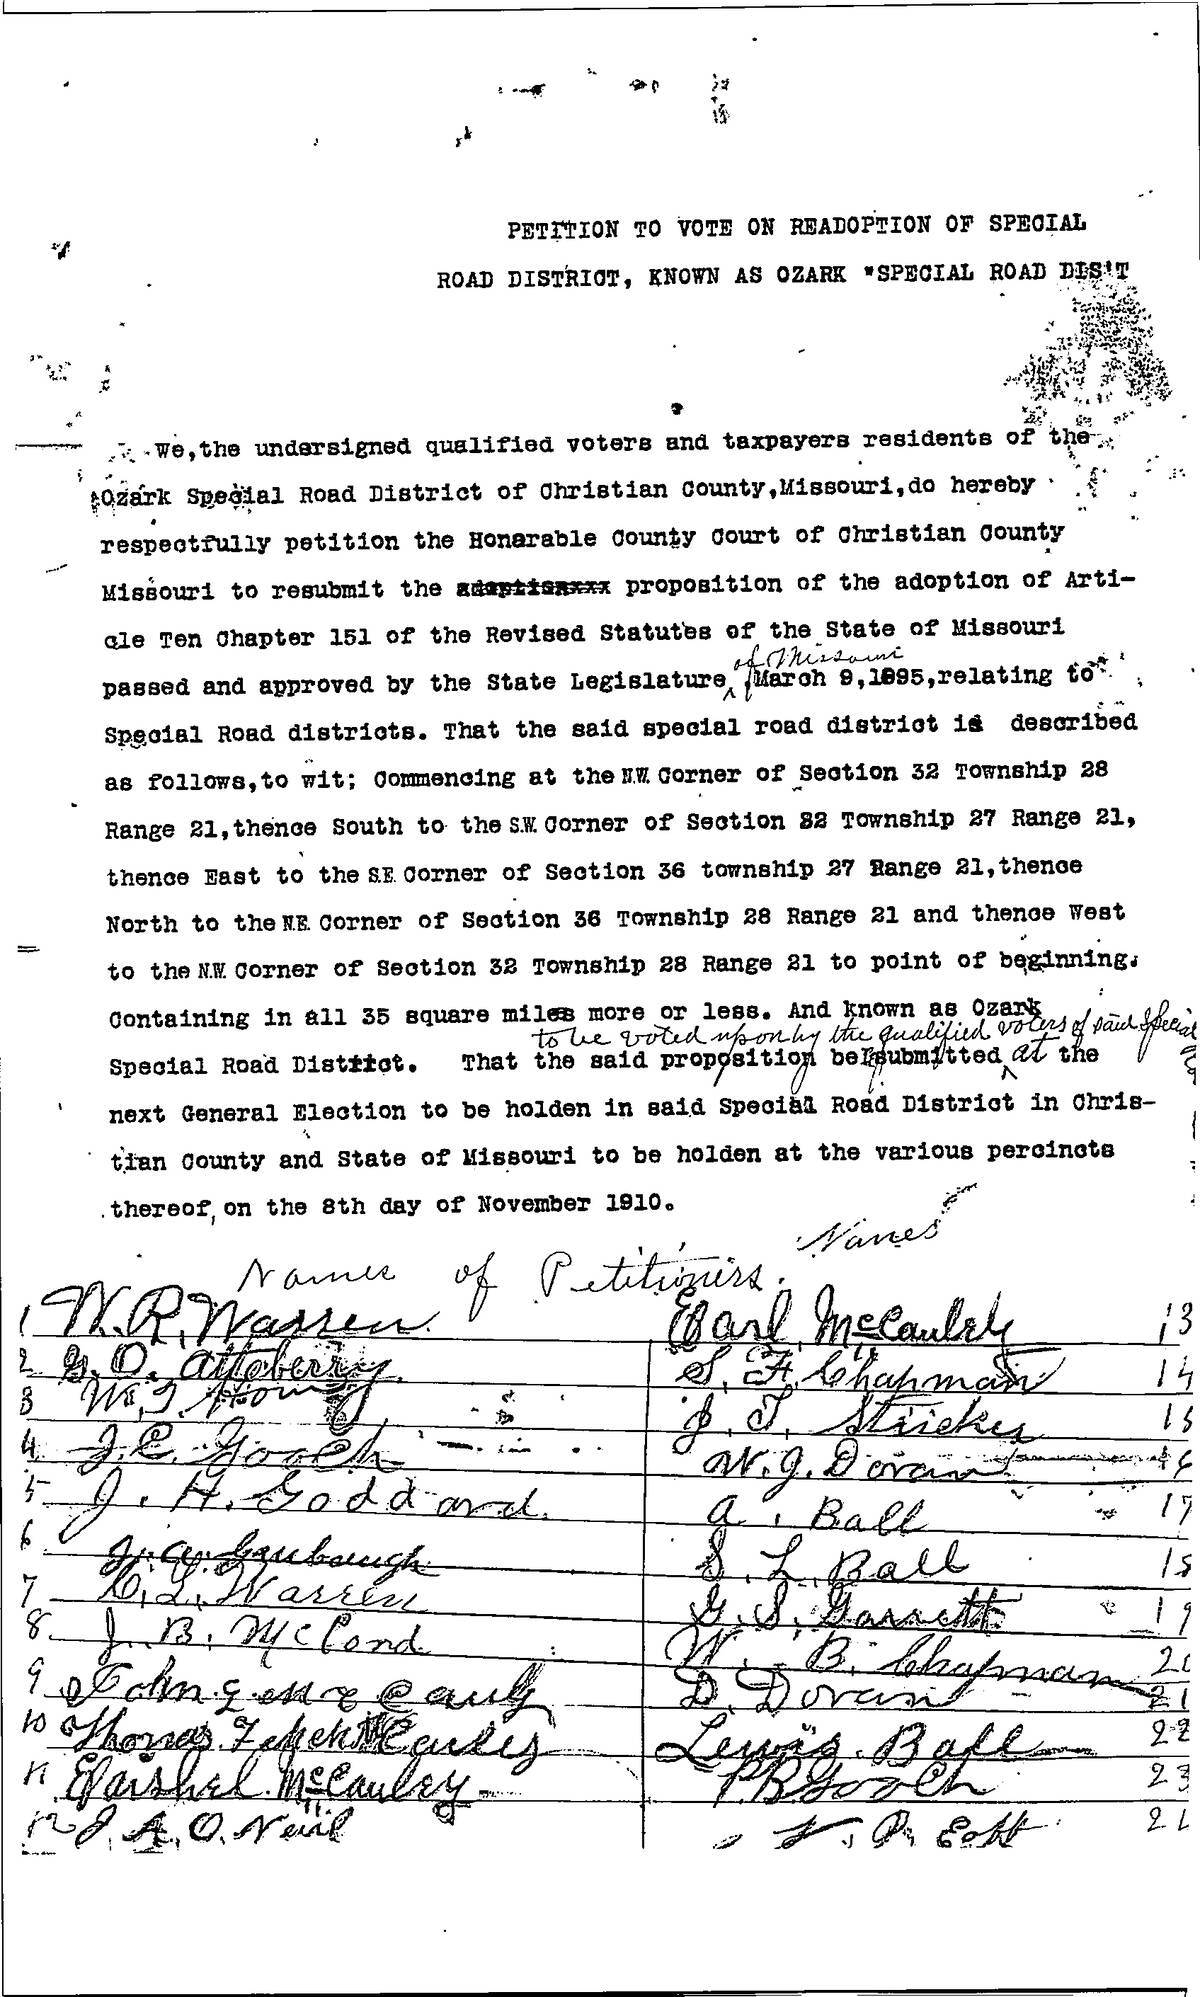 PETITION TO VOTE ON READOPTION OF SPECIAL
ROAD DISTRICT, KNOWN AS OZARK "SPECIAL ROAD DIS'T
We,the undersigned qualified voters and taxpayers residents of the
Ozark Special Road District of Christian County,Missouri,do hereby
respectfully petition the Honarable County Court of Christian County
Missouri to resubmit the proposition of the adoption of Arti-
cle Ten Chapter 151 of the Revised Statutes of the State of Missouri
of Missouri
passed and approved by the State Legislature, March 9,1895,relating to
Special Road districts. That the said special road district is described
as follows,to wit; Commencing at the N.W. Corner of Section 32 Township 28
Range 21,thence South to the S.W. Corner of Section 32 Township 27 Range 21,
thence East to the S.E. Corner of Section 36 township 27 Range 21,thence
North to the N.E. Corner of Section 36 Township 28 Range 21 and thence West
to the N.W. Corner of Section 32 Township 28 Range 21 to point of beginning.
Containing in all 35 square miles more or less. And known as Ozark
to be voted upon by the qualified voters of said Special
Special Road District. That the said proposition be submitted at the
next General Election to be holden in said Special Road District in Chris-
tian County and State of Missouri to be holden at the various percincts
thereof, on the 8th day of November 1910.
Names of Petitioners. Names
1 W. R. Warren
2 G. O. Atteberry
3 W. T.
4 J. C. Gooch
5 J. H. Goddard
6
7 C. L. Warren
8 J. B. McCord
9 John
10 Thomas McCauley
11 Harshel McCauley
12 J. A. O. Neil
Earl McCauley 13
S. F. Chapman 14
J. T. 15
W. J. Doran 16
A. Ball 17
S. L. Ball 18
G. S. Garrett 19
W. B. Chapman 20
D. Doran 21
Lewis Ball 22
P. B. Gooch 23